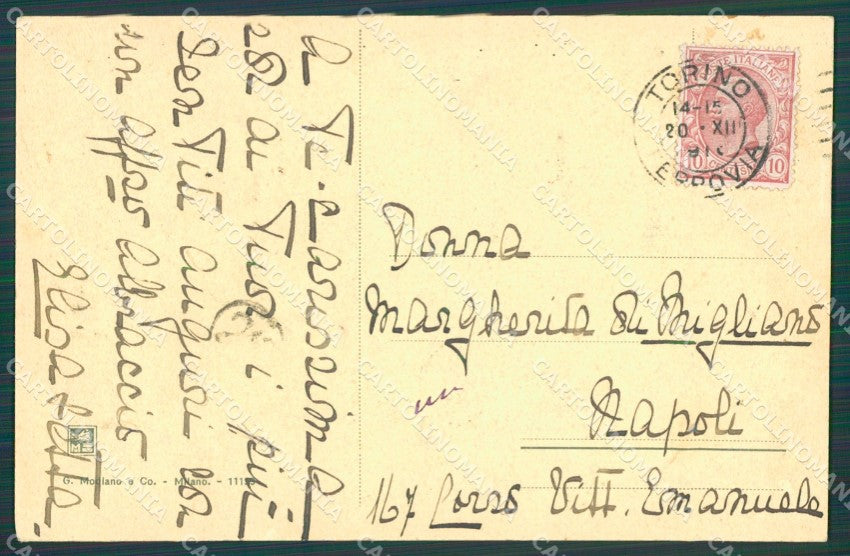 A Te carissima
ed ai Tuoi i più
sentiti auguri con
un affso abbraccio
Elisabetta.
G. Modiano e Co. - Milano. - 1115
TORINO
14-15
20 · XII
FERROVIA
POSTE ITALIANE
10 10
Donna
Margherita di Migliano
Napoli
167 Corso Vitt. Emanuele
CARTOLINOMANIA